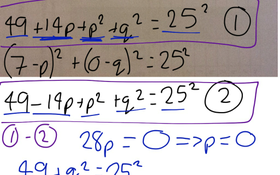 49 + 14p + p² + q² = 25² ①
(7-p)² + (0-q)² = 25²
49 - 14p + p² + q² = 25² ②
① - ② 28p = 0 => p = 0
49 + q² = 25²